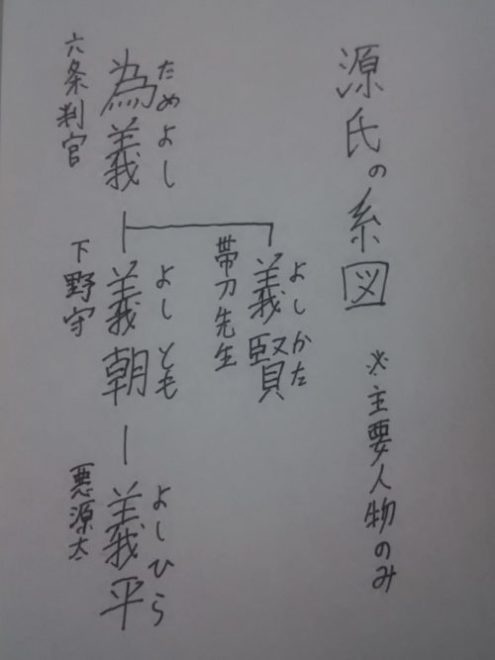 源氏の系図 ※主要人物のみ
よしかた
義賢
帯刀先生
ためよし
為義
六条判官
よしとも
義朝
下野守
よしひら
義平
悪源太